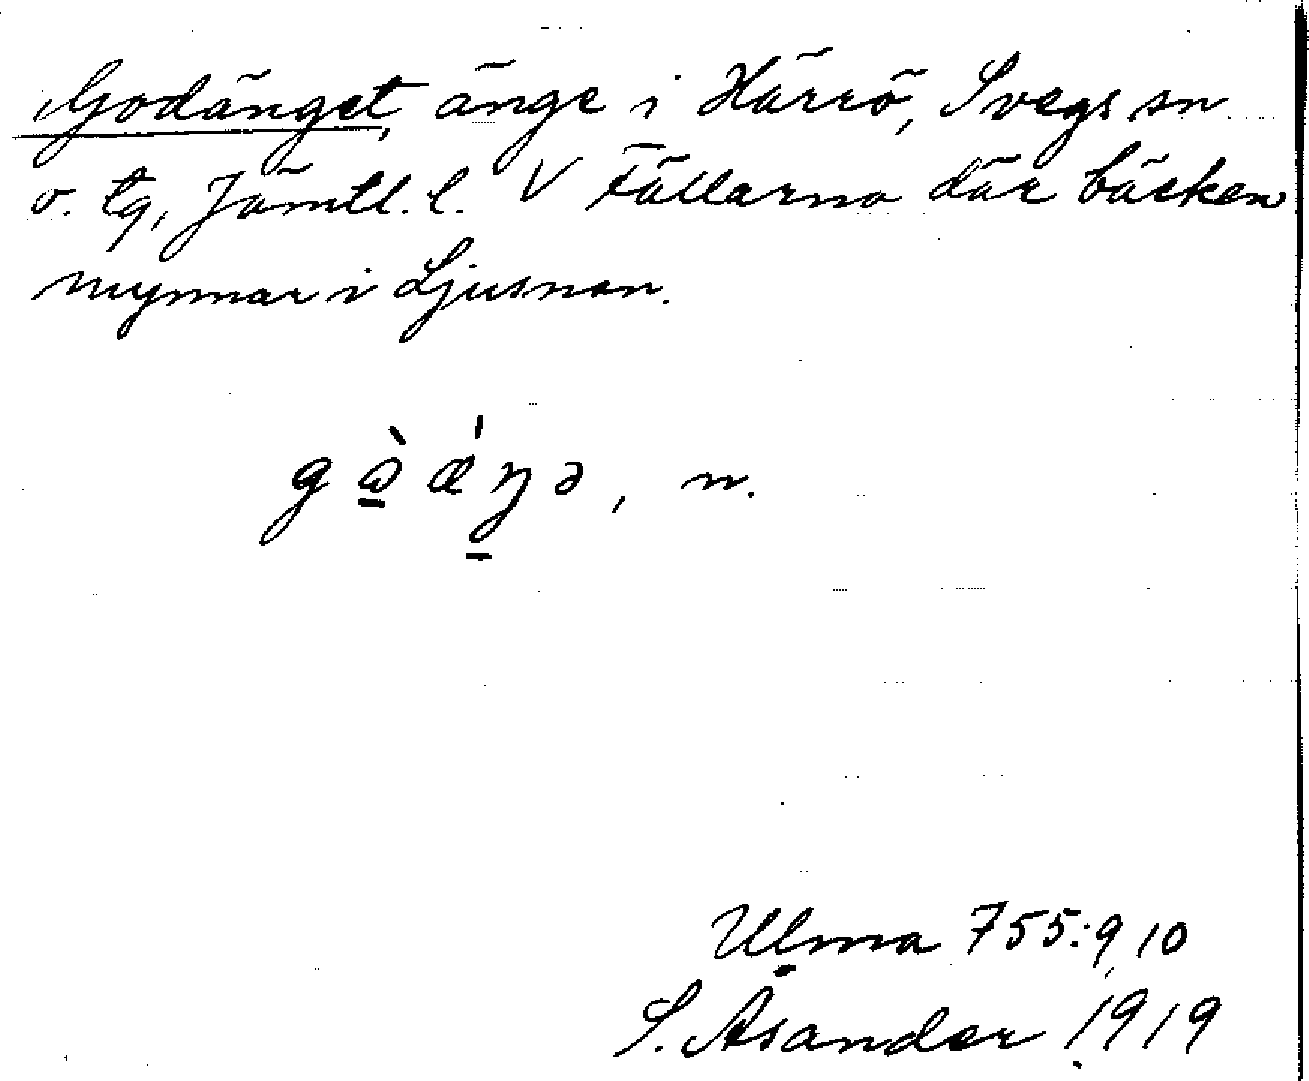 Godänget, änge i Härrö, Svegs sn
o. tg, Jämtl. l. V Fällarna där bäcken
mynnar i Ljusnan.
gɷ̠̀ǽŋ̠ə, n.
Ulma 755:9, 10
S. Åsander 1919